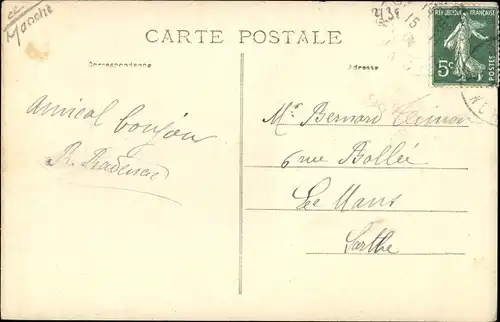 Manche
CARTE POSTALE
Correspondance
Adresse
RÉPUBLIQUE FRANÇAISE
5c
POSTES
15
Amical bonjour
Mr Bernard
6 rue Bollée
Le Mans
Sarthe